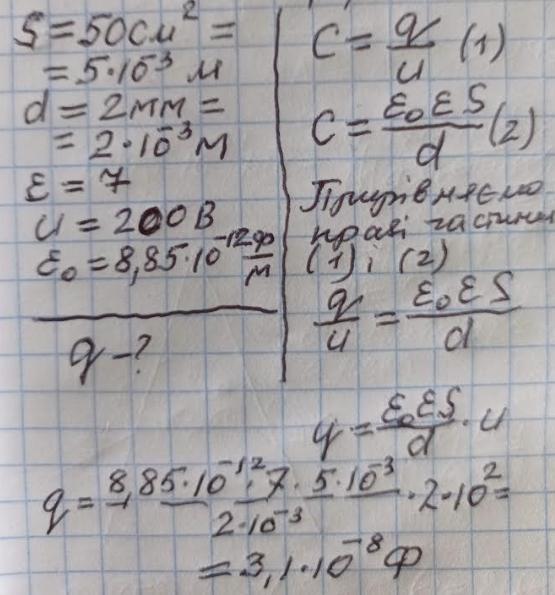 S = 50см² =
= 5·10⁻³ м
d = 2мм =
= 2·10⁻³ м
ε = 7
u = 200В
ε₀ = 8,85·10⁻¹² ф/м
q - ?
C = q/u (1)
C = ε₀εS/d (2)
Прирівняємо
праві частини
(1) і (2)
q/u = ε₀εS/d
q = ε₀εS/d · u
q = 8,85·10⁻¹²·7·5·10⁻³/2·10⁻³ · 2·10² =
= 3,1·10⁻⁸ Ф